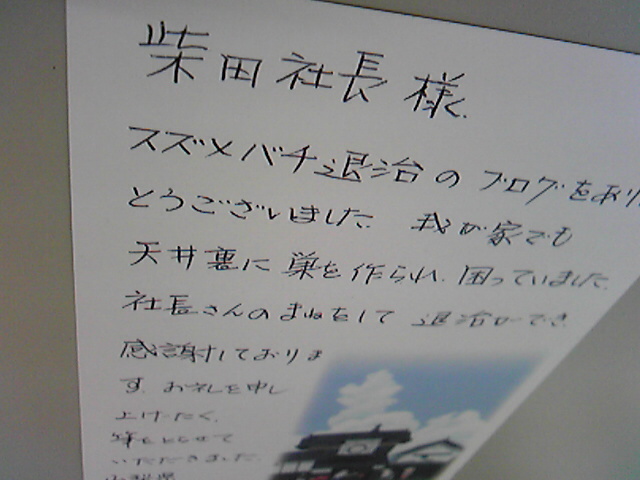 柴田社長様
スズメバチ退治のブログをあり
とうございました。我が家でも
天井裏に巣を作られ、困っていました。
社長さんのまねをして退治ができ
感謝しておりま
す。お礼を申し
上げたく、
筆をとらせて
いただきました。